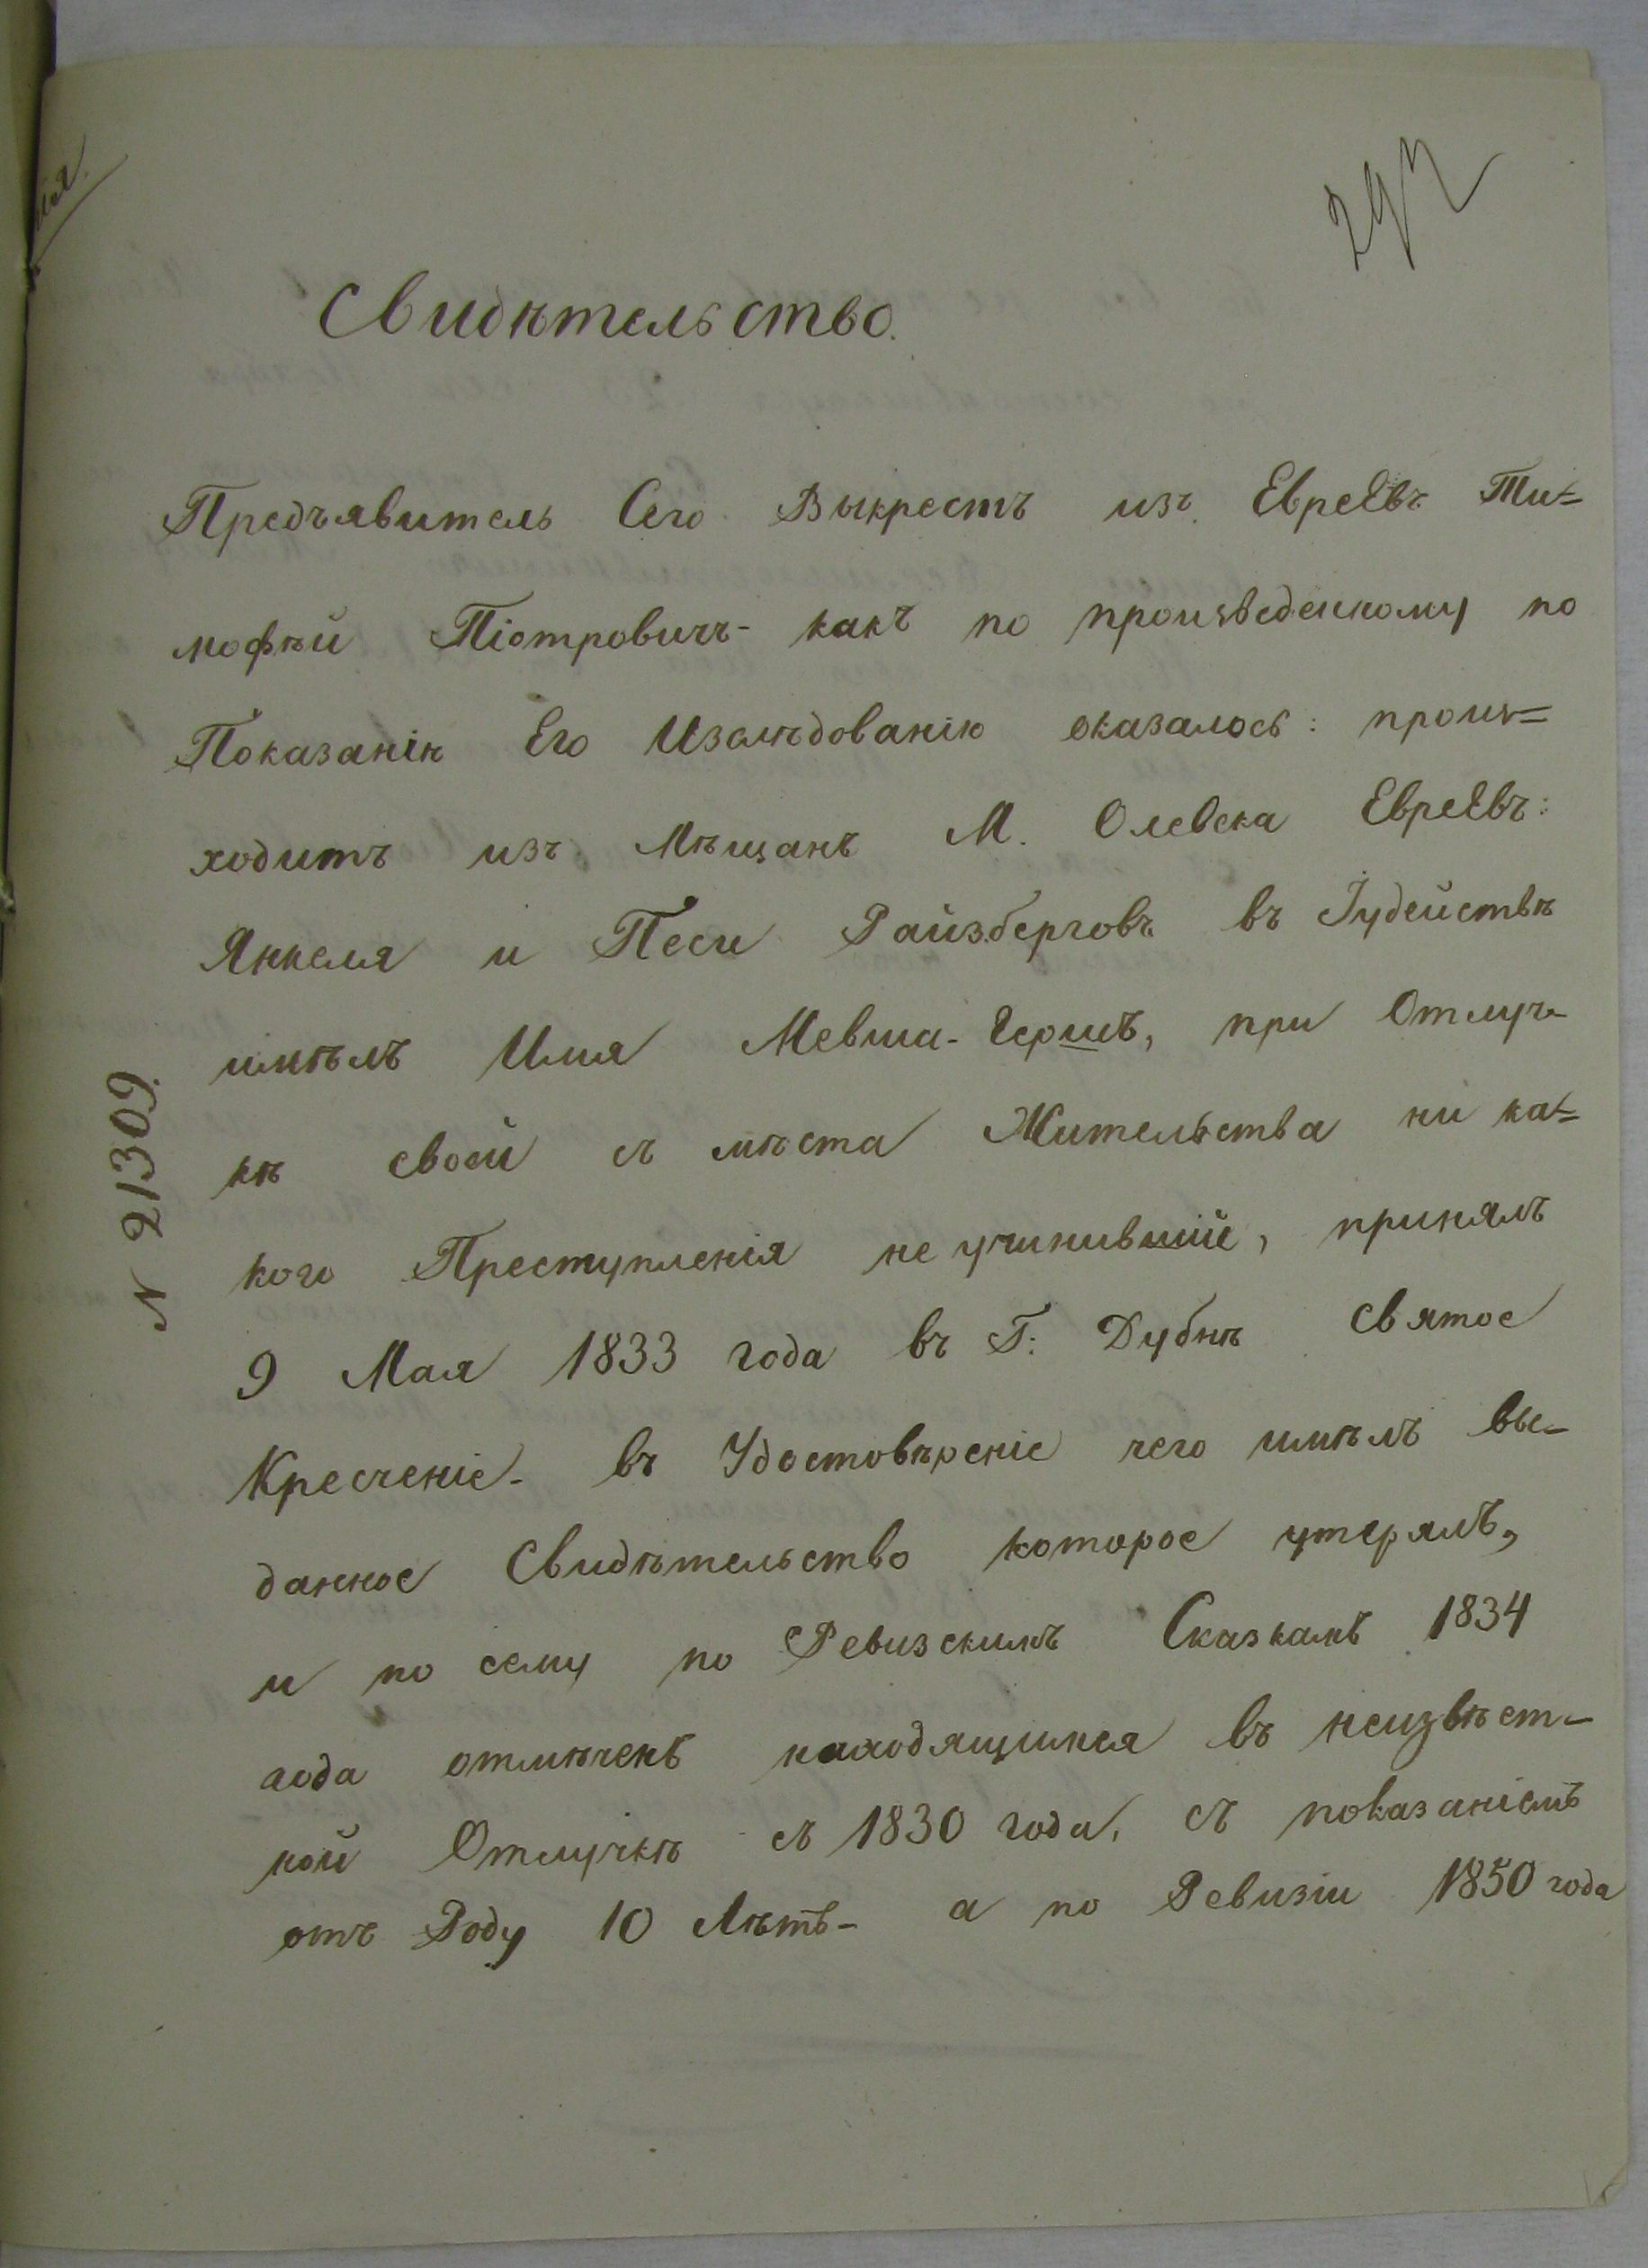 292
Свидѣтельство.
Предъявитель Сего Выкрестъ изъ Евреевъ Ти=
мофѣй Піотровичъ- какъ по произведенному по
Показанію Его Изслѣдованію оказалось: проис=
ходитъ изъ Мѣщанъ М. Олевска Евреевъ:
Янкеля и Песи Райзберговъ въ Іудействѣ
имѣлъ Имя Мевша-Гершъ, при Отлуч-
кѣ своей съ мѣста Жительства ни ка=
кого Преступленія не учинившій, принялъ
9 Мая 1833 года въ Г: Дубнѣ Святое
Кресченіе- въ Удостовѣреніе чего имѣлъ вы-
данное Свидѣтельство которое утерялъ,
и по сему по Ревизскимъ Сказкамъ 1834
года отмѣченъ находящимся въ неизвѣст-
ной Отлучкѣ съ 1830 года, съ показаніемъ
отъ Роду 10 Лѣтъ- а по Ревизіи 1850 года
N 21309.